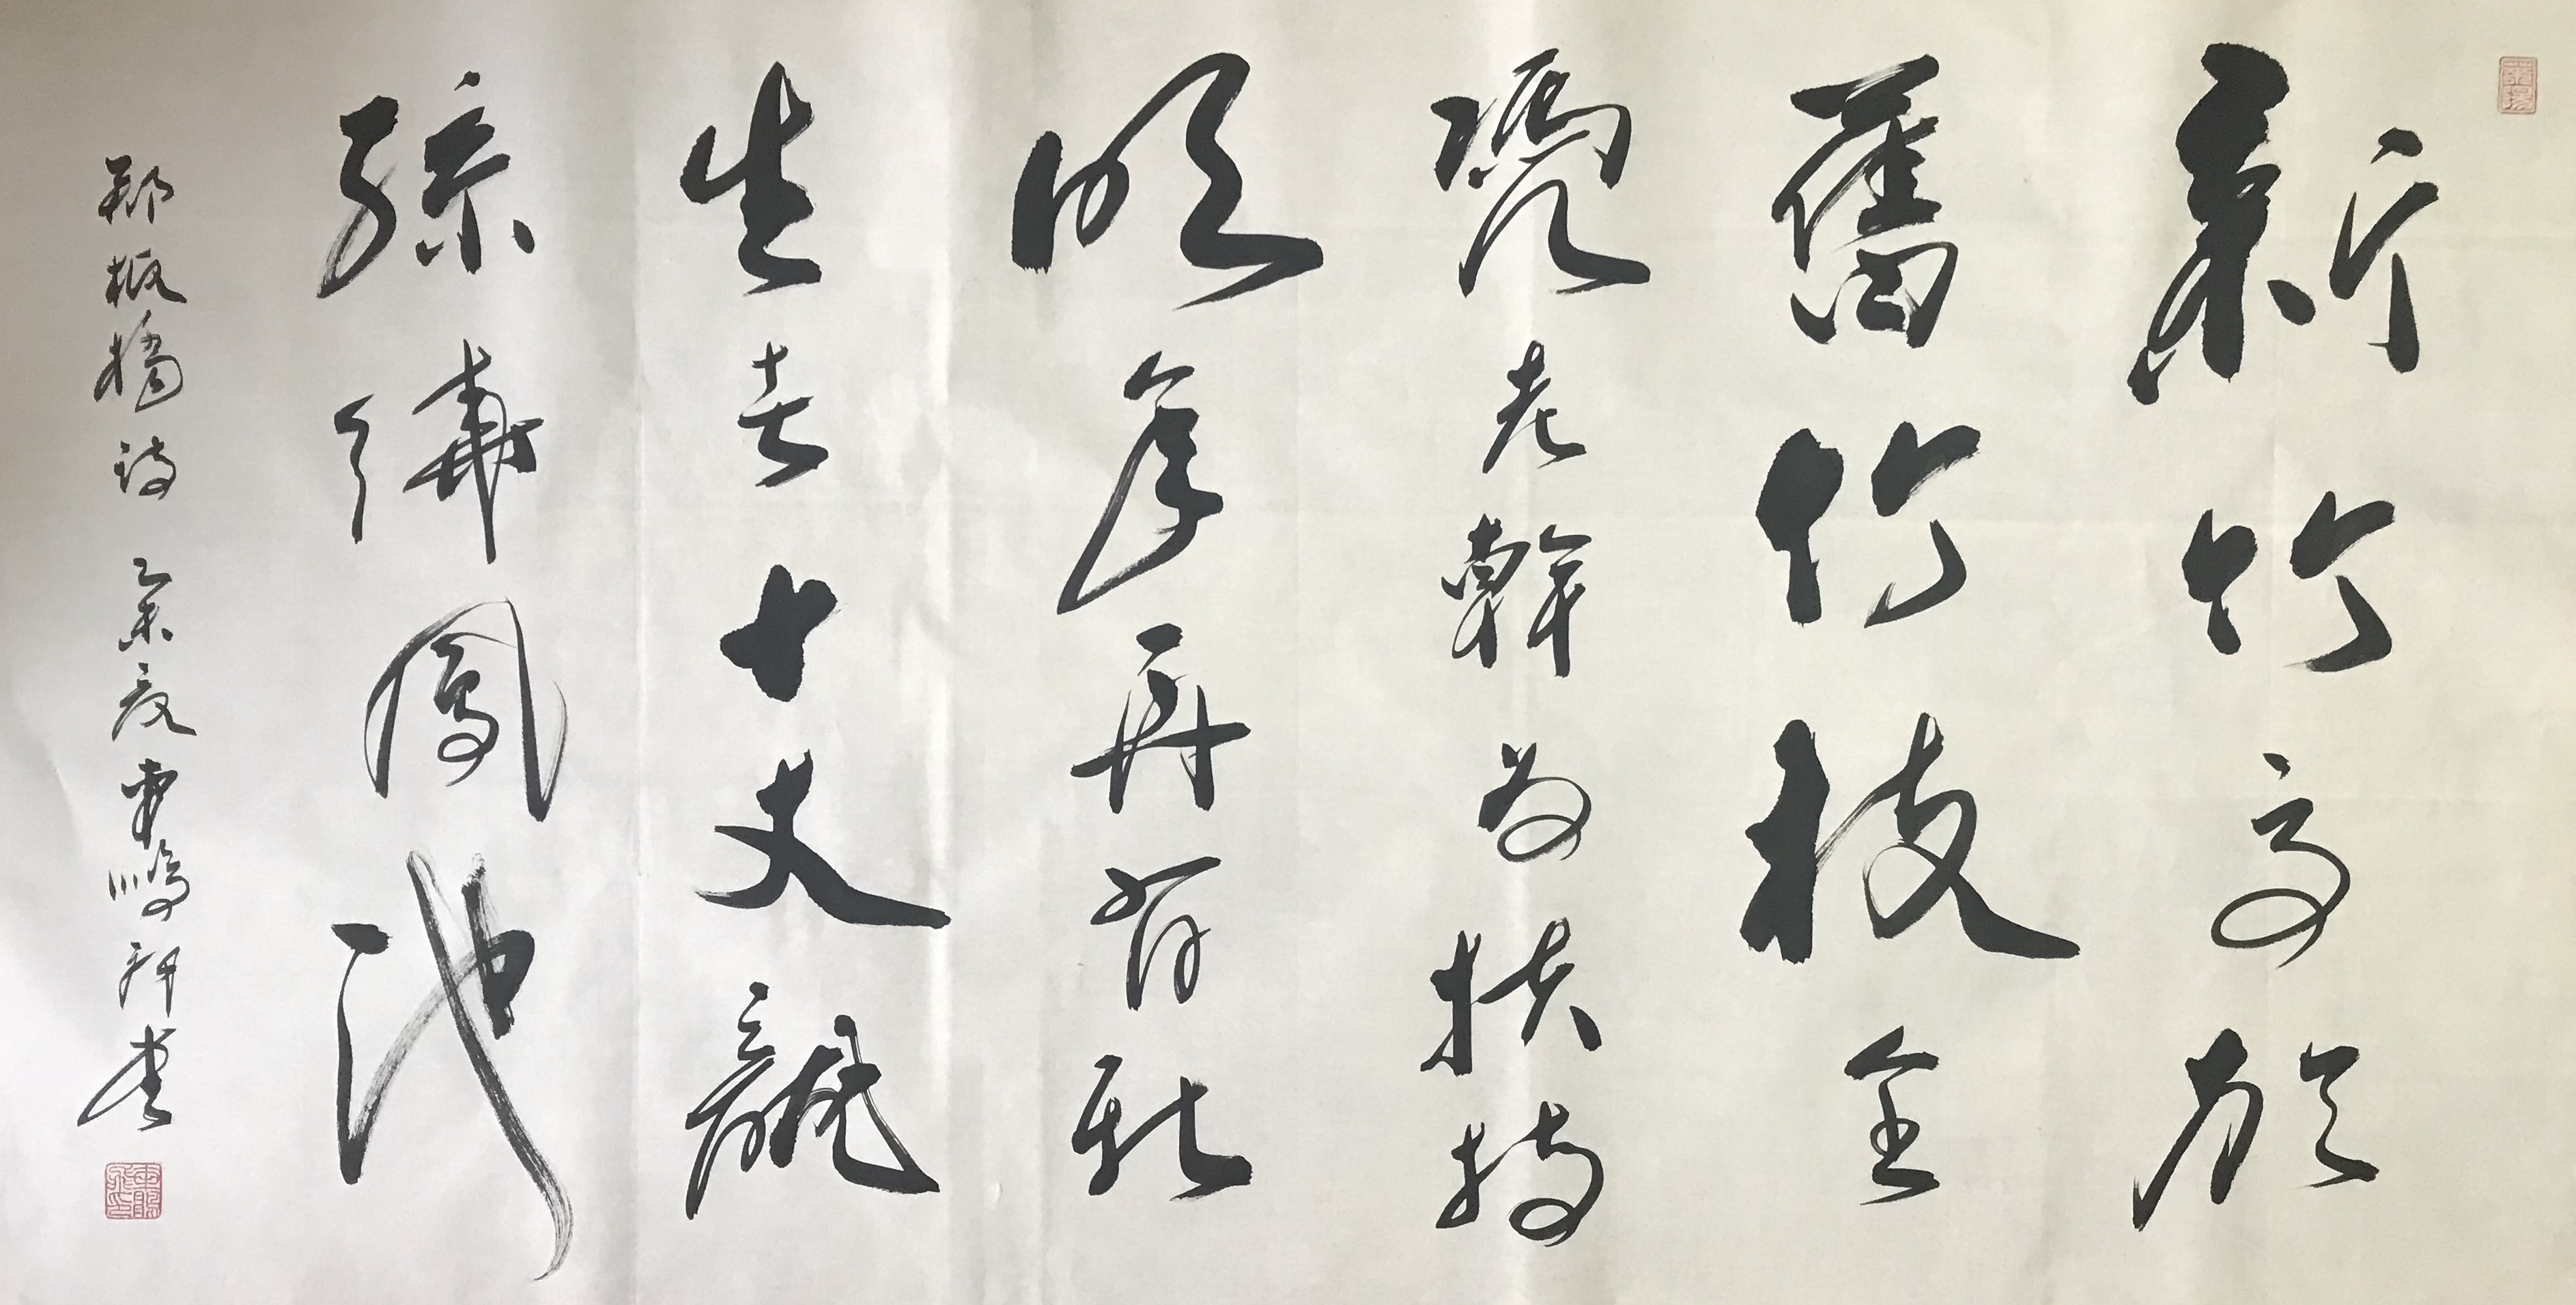 新竹高於
舊竹枝全
凴老幹為扶持
明年再有新
生者十丈龍
孫繞鳳池
鄭板橋詩 乙未夏東鵬拜書